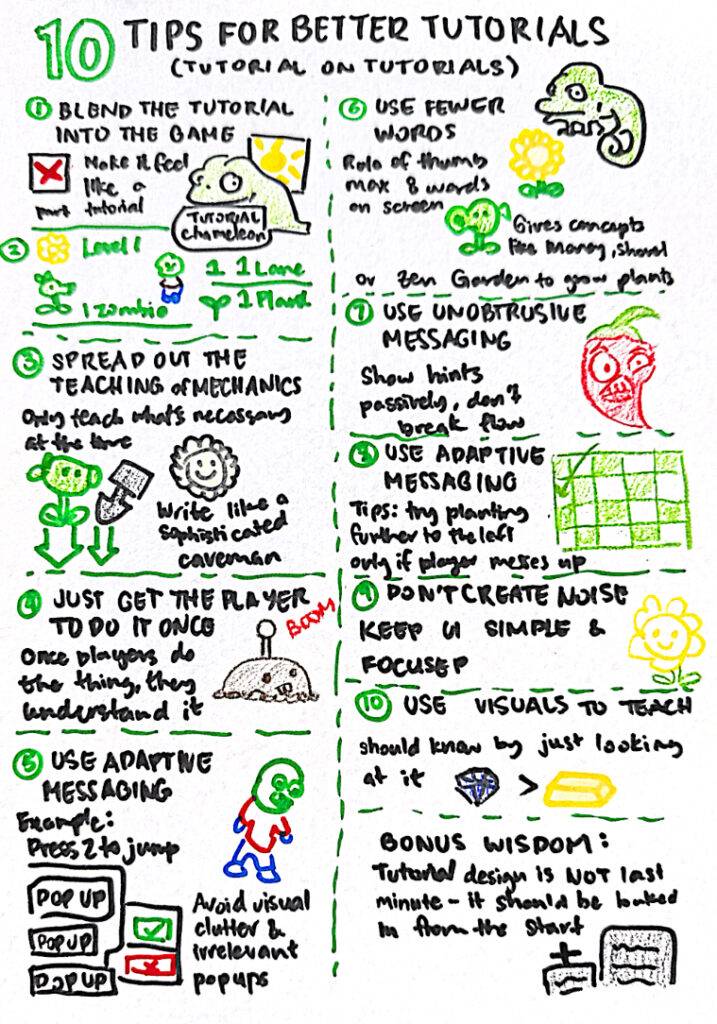 10 TIPS FOR BETTER TUTORIALS
(TUTORIAL ON TUTORIALS)
① BLEND THE TUTORIAL
INTO THE GAME
Make it feel
like a
part tutorial
TUTORIAL
chameleon
② Level 1
1 1 Lane
1 Zombie
1 Plant
③ SPREAD OUT THE
TEACHING of MECHANICS
Only teach what's necessary
at the time
Write like a
sophisticated
caveman
④ JUST GET THE PLAYER
TO DO IT ONCE
BOOM
Once players do
the thing, they
understand it
⑤ USE ADAPTIVE
MESSAGING
Example:
Press Z to jump
POP UP
POP UP
POP UP
Avoid visual
clutter &
irrelevant
popups
⑥ USE FEWER
WORDS
Rule of thumb
max 8 words
on screen
Gives concepts
like money, shovel
or Zen Garden to grow plants
⑦ USE UNOBTRUSIVE
MESSAGING
Show hints
passively, don't
break flow
⑧ USE ADAPTIVE
MESSAGING
Tips: try planting
further to the left
only if player messes up
⑨ DON'T CREATE NOISE
KEEP UI SIMPLE &
FOCUSED
⑩ USE VISUALS TO TEACH
should know by just looking
at it >
BONUS WISDOM:
Tutorial design is NOT last
minute - it should be baked
in from the start